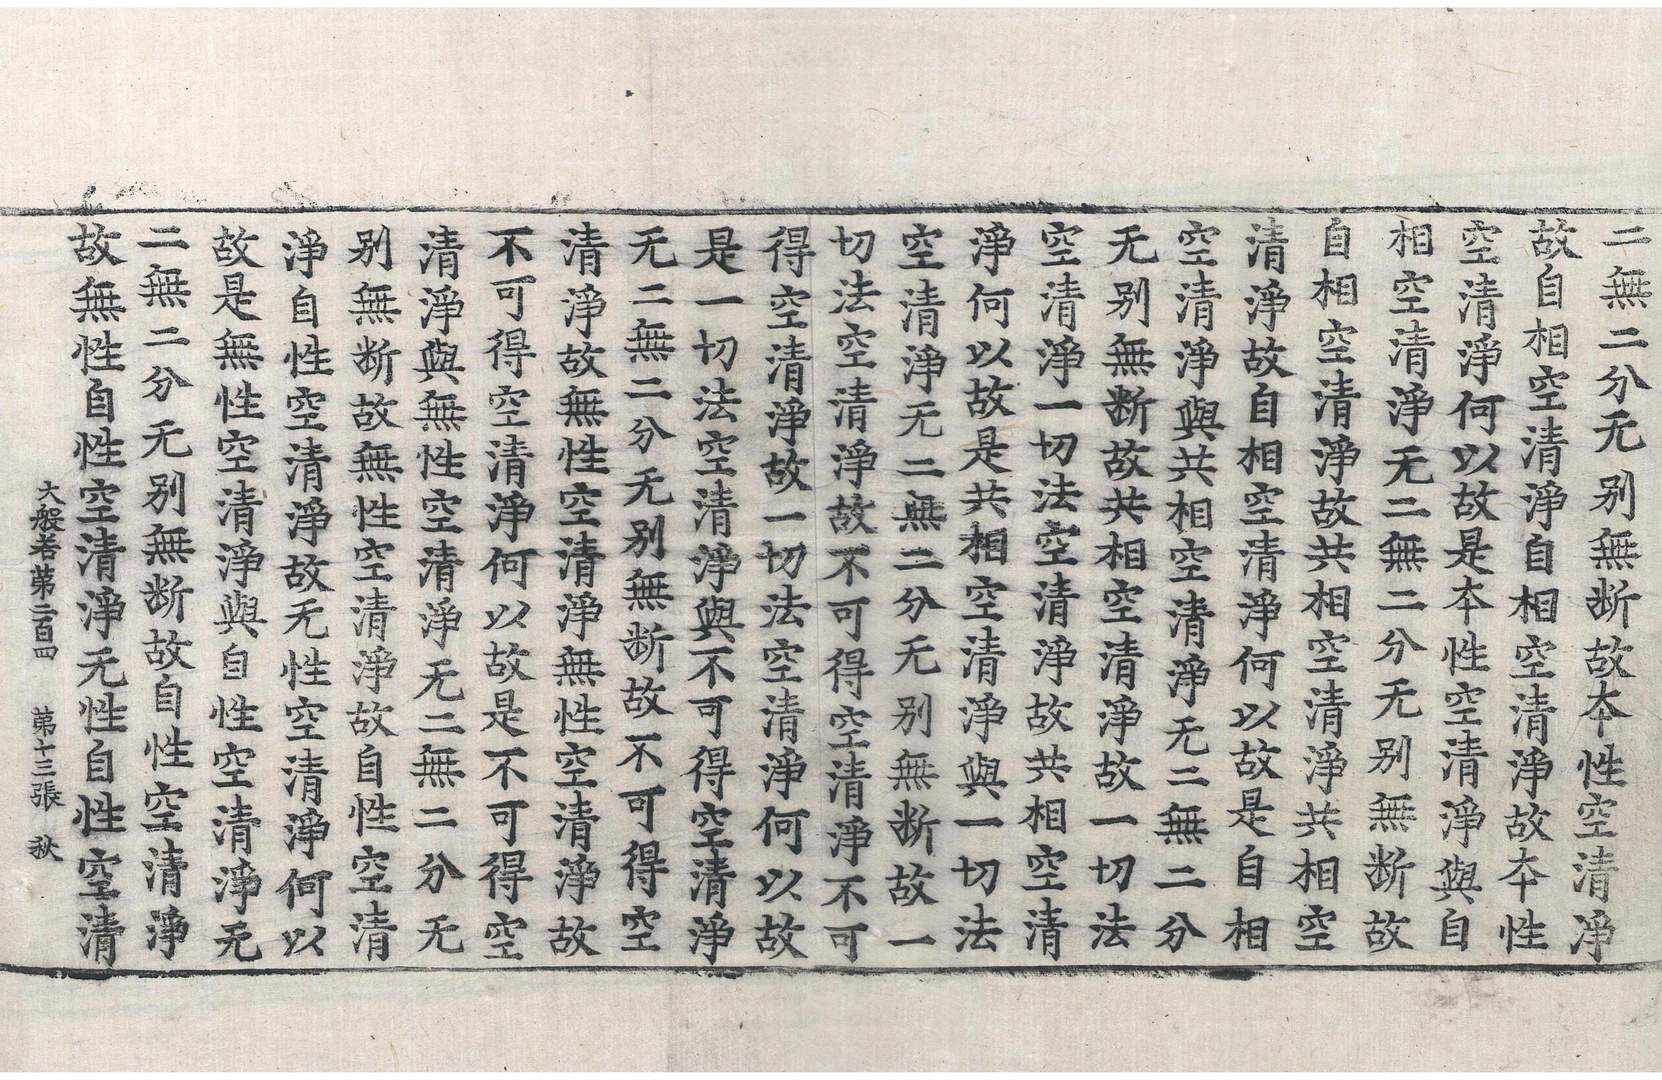 二無二分无别無断故本性空清淨
故自相空清淨自相空清淨故本性
空清淨何以故是本性空清淨與自
相空清淨无二無二分无别無断故
自相空清淨故共相空清淨共相空
清淨故自相空清淨何以故是自相
空清淨與共相空清淨无二無二分
无别無断故共相空清淨故一切法
空清淨一切法空清淨故共相空清
淨何以故是共相空清淨與一切法
空清淨无二無二分无别無断故一
切法空清淨故不可得空清淨不可
得空清淨故一切法空清淨何以故
是一切法空清淨與不可得空清淨
无二無二分无别無断故不可得空
清淨故無性空清淨無性空清淨故
不可得空清淨何以故是不可得空
清淨與無性空清淨无二無二分无
别無断故無性空清淨故自性空清
淨自性空清淨故无性空清淨何以
故是無性空清淨與自性空清淨无
二無二分无别無断故自性空清淨
故無性自性空清淨无性自性空清
大般若第二百四 第十三張 秋